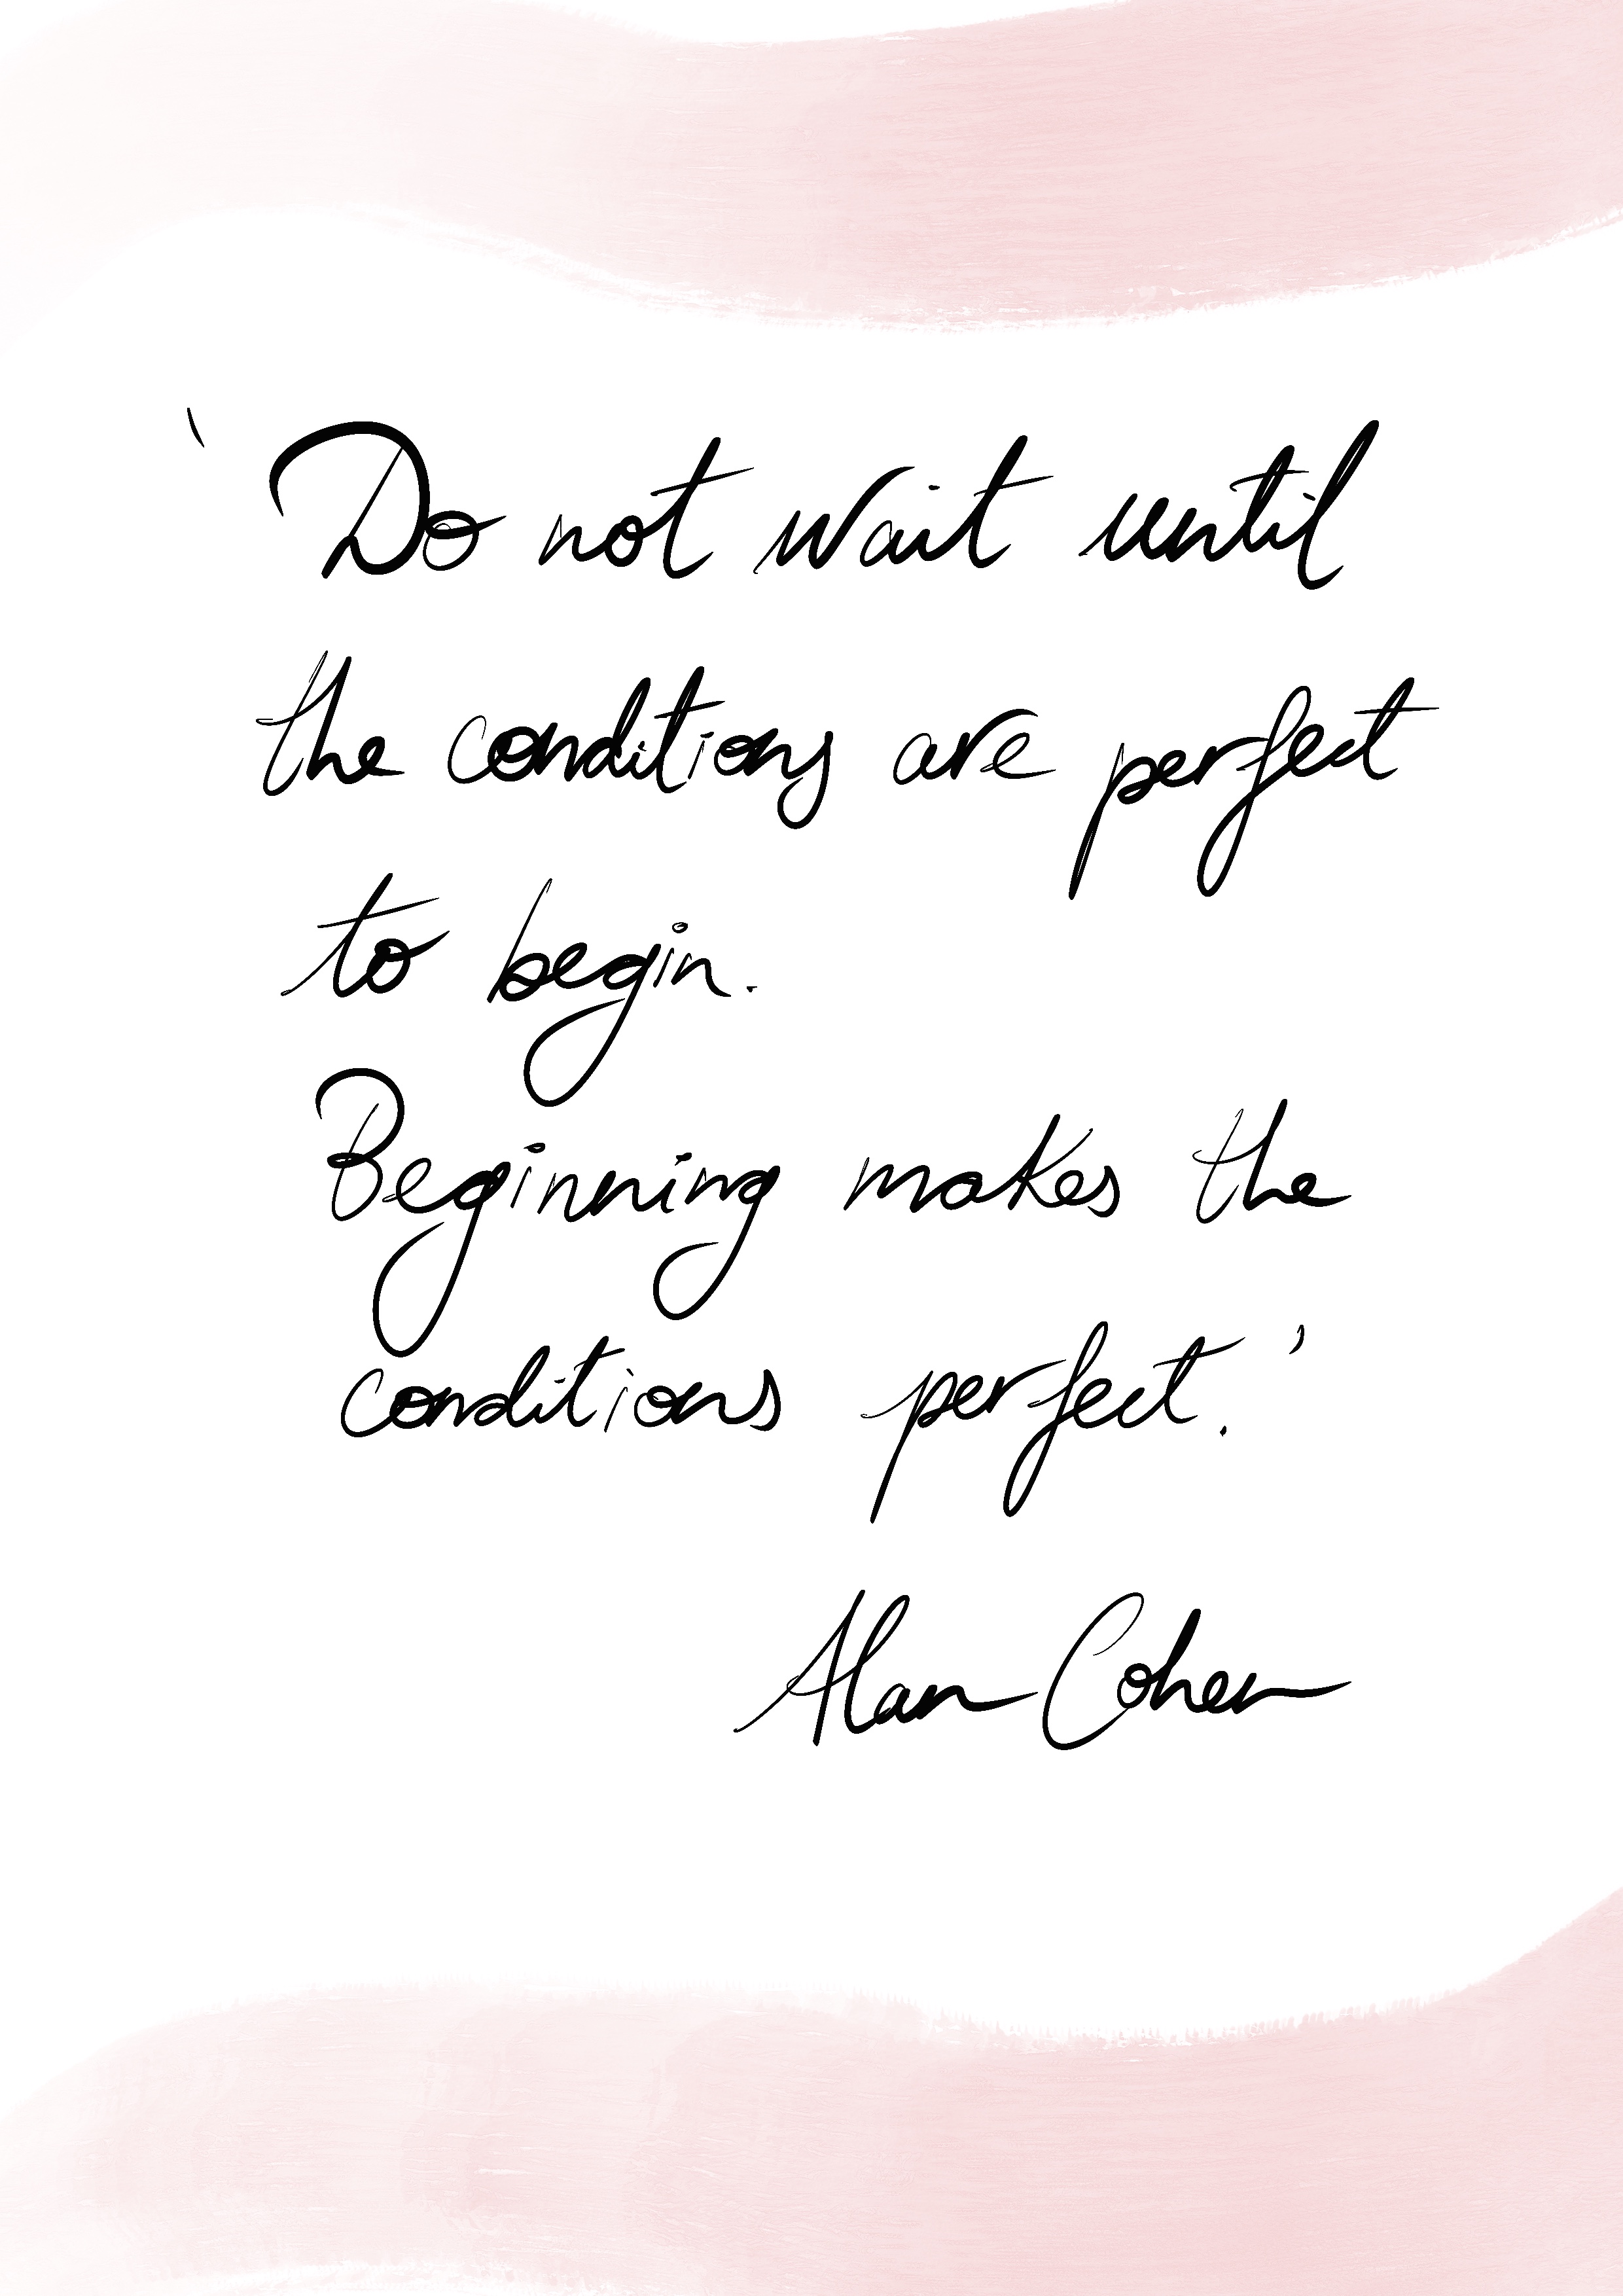 ‘Do not wait until
the conditions are perfect
to begin.
Beginning makes the
conditions perfect.’
Alan Cohen